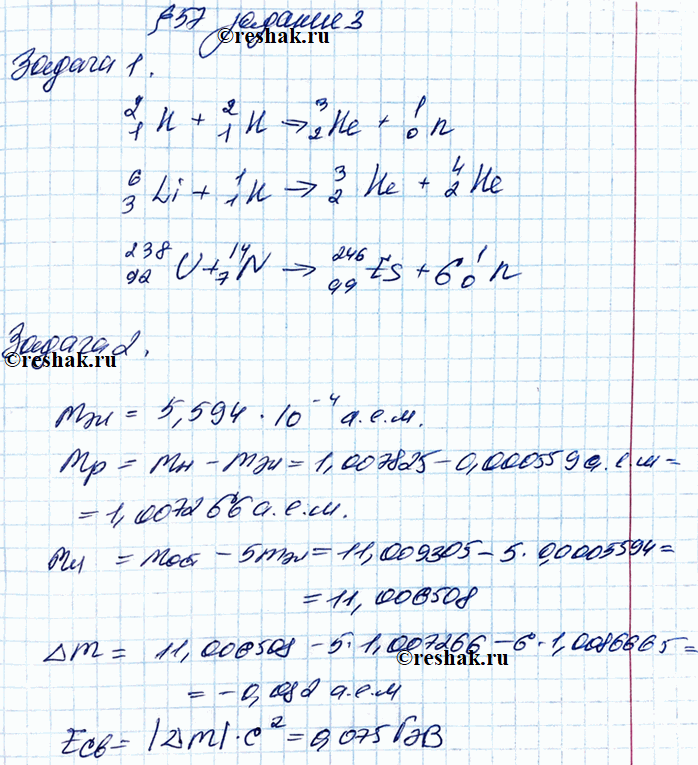 §57 задание 3
©reshak.ru
Задача 1.
²₁H + ²₁H → ³₂He + ¹₀n
⁶₃Li + ¹₁H → ³₂He + ⁴₂He
²³⁸₉₂U + ¹⁴₇N → ²⁴⁶₉₉Es + 6¹₀n
Задача 2.
©reshak.ru
mэл = 5,594 · 10⁻⁴ а.е.м.
mp = mн − mэл = 1,007825 − 0,000559 а.е.м =
= 1,007266 а.е.м.
= mоб − 5mэл = 11,009305 − 5 · 0,0005594 =
= 11,006508
Δm = 11,006508 − 5 · 1,007266 − 6 · 1,0086665 =
©reshak.ru
= −0,082 а.е.м
Eсв = |Δm| · c² = 0,075 ГэВ